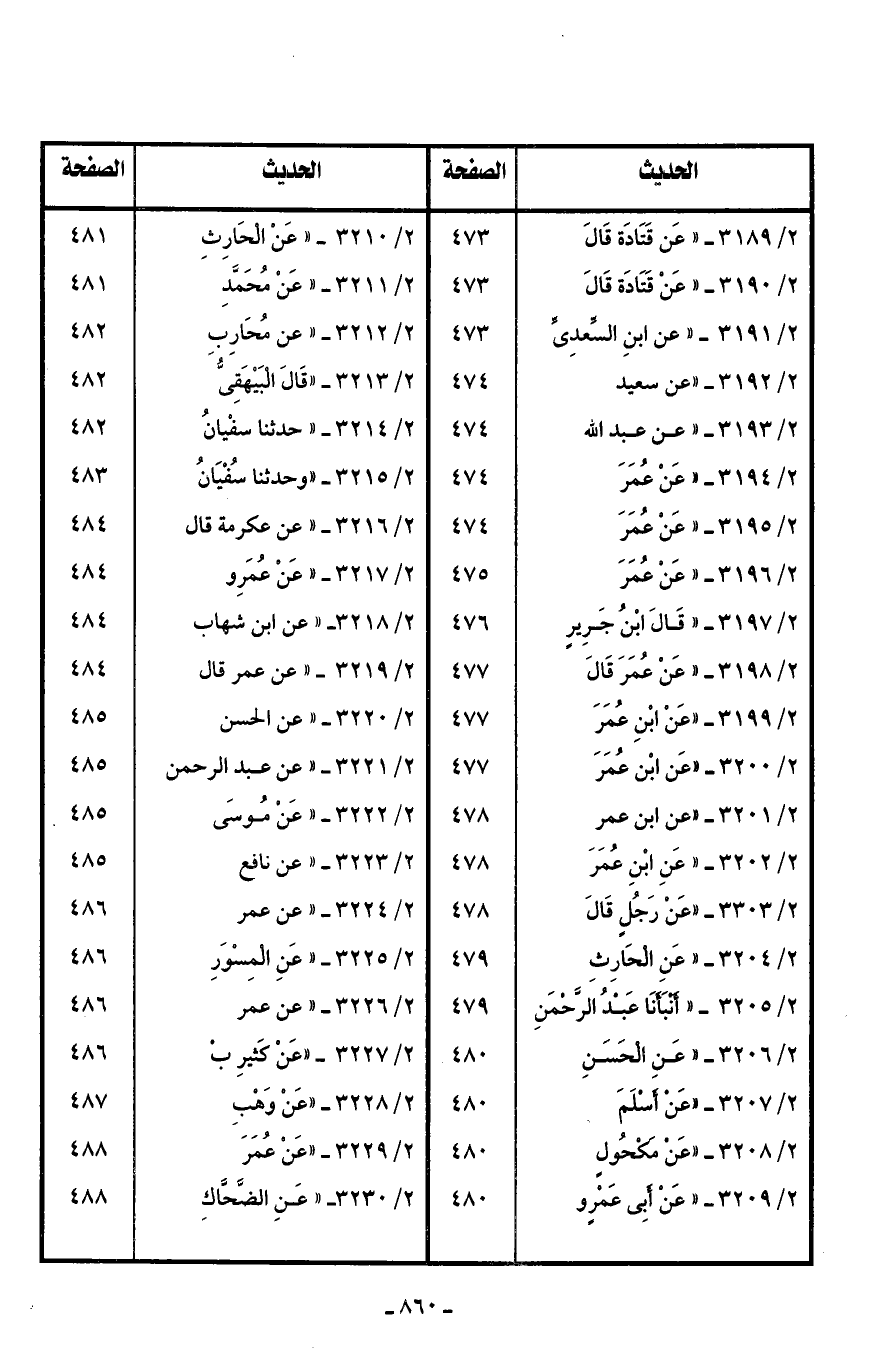 الحديث الصفحة الحديث الصفحة
٢/ ٣١٨٩ـ « عَن قَتَادَة قَالَ ٤٧٣ ٢/ ٣٢١٠ ـ « عَنْ الْحَارِثِ ٤٨١
٢/ ٣١٩٠ـ « عَنْ قَتَادَة قَالَ ٤٧٣ ٢/ ٣٢١١ـ « عَنْ مُحَمَّدِ ٤٨١
٢/ ٣١٩١ ـ « عن ابنِ السِّعدِىِّ ٤٧٣ ٢/ ٣٢١٢ـ « عن مُحَارِبِ ٤٨٢
٢/ ٣١٩٢ـ «عن سعيد ٤٧٤ ٢/ ٣٢١٣ـ «قَالَ الْبَيْهَقِىُّ ٤٨٢
٢/ ٣١٩٣ـ « عـن عـبد الله ٤٧٤ ٢/ ٣٢١٤ـ « حدثنا سفْيانُ ٤٨٢
٢/ ٣١٩٤ـ « عَنْ عُمَرَ ٤٧٤ ٢/ ٣٢١٥ـ «وحدثنا سُفْيَانُ ٤٨٣
٢/ ٣١٩٥ـ « عَنْ عُمَرَ ٤٧٤ ٢/ ٣٢١٦ـ « عن عكرمة قال ٤٨٤
٢/ ٣١٩٦ـ « عَنْ عُمَرَ ٤٧٥ ٢/ ٣٢١٧ـ « عَنْ عُمَرِو ٤٨٤
٢/ ٣١٩٧ـ « قَـالَ ابْنُ جَـرِيرٍ ٤٧٦ ٢/ ٣٢١٨ـ « عن ابن شهاب ٤٨٤
٢/ ٣١٩٨ـ « عَنْ عُمَرَ قَالَ ٤٧٧ ٢/ ٣٢١٩ ـ « عن عمر قال ٤٨٤
٢/ ٣١٩٩ـ «عَنْ ابْنِ عُمَرَ ٤٧٧ ٢/ ٣٢٢٠ـ « عن الحسن ٤٨٥
٢/ ٣٢٠٠ـ «عَن ابْنِ عُمَرَ ٤٧٧ ٢/ ٣٢٢١ـ « عن عـبد الرحمن ٤٨٥
٢/ ٣٢٠١ـ «عن ابن عمر ٤٧٨ ٢/ ٣٢٢٢ـ « عَنْ مُـوسَى ٤٨٥
٢/ ٣٢٠٢ـ « عَنِ ابْنِ عُمَرَ ٤٧٨ ٢/ ٣٢٢٣ـ « عن نافع ٤٨٥
٢/ ٣٣٠٣ـ «عَنْ رَجُلٍ قَالَ ٤٧٨ ٢/ ٣٢٢٤ـ « عن عمر ٤٨٦
٢/ ٣٢٠٤ـ « عَنِ الْحَارِثِ ٤٧٩ ٢/ ٣٢٢٥ـ « عَنِ الْمِسْوَرِ ٤٨٦
٢/ ٣٢٠٥ ـ « أَنْبَأَنَا عَبْـدُ الرَّحْمَنِ ٤٧٩ ٢/ ٣٢٢٦ـ « عن عمر ٤٨٦
٢/ ٣٢٠٦ـ « عَـنِ الْحَسَـنِ ٤٨٠ ٢/ ٣٢٢٧ ـ «عَنْ كَثيرِ بْ ٤٨٦
٢/ ٣٢٠٧ـ «عَنْ أَسْلَمَ ٤٨٠ ٢/ ٣٢٢٨ـ «عَنْ وَهْبِ ٤٨٧
٢/ ٣٢٠٨ـ «عَنْ مَكْحُولٍ ٤٨٠ ٢/ ٣٢٢٩ـ «عَنْ عُمَرَ ٤٨٨
٢/ ٣٢٠٩ـ « عَنْ أَبِى عَمْرٍو ٤٨٠ ٢/ ٣٢٣٠ـ « عَـنِ الضَّحَّاكِ ٤٨٨
ـ ٨٦٠ ـ